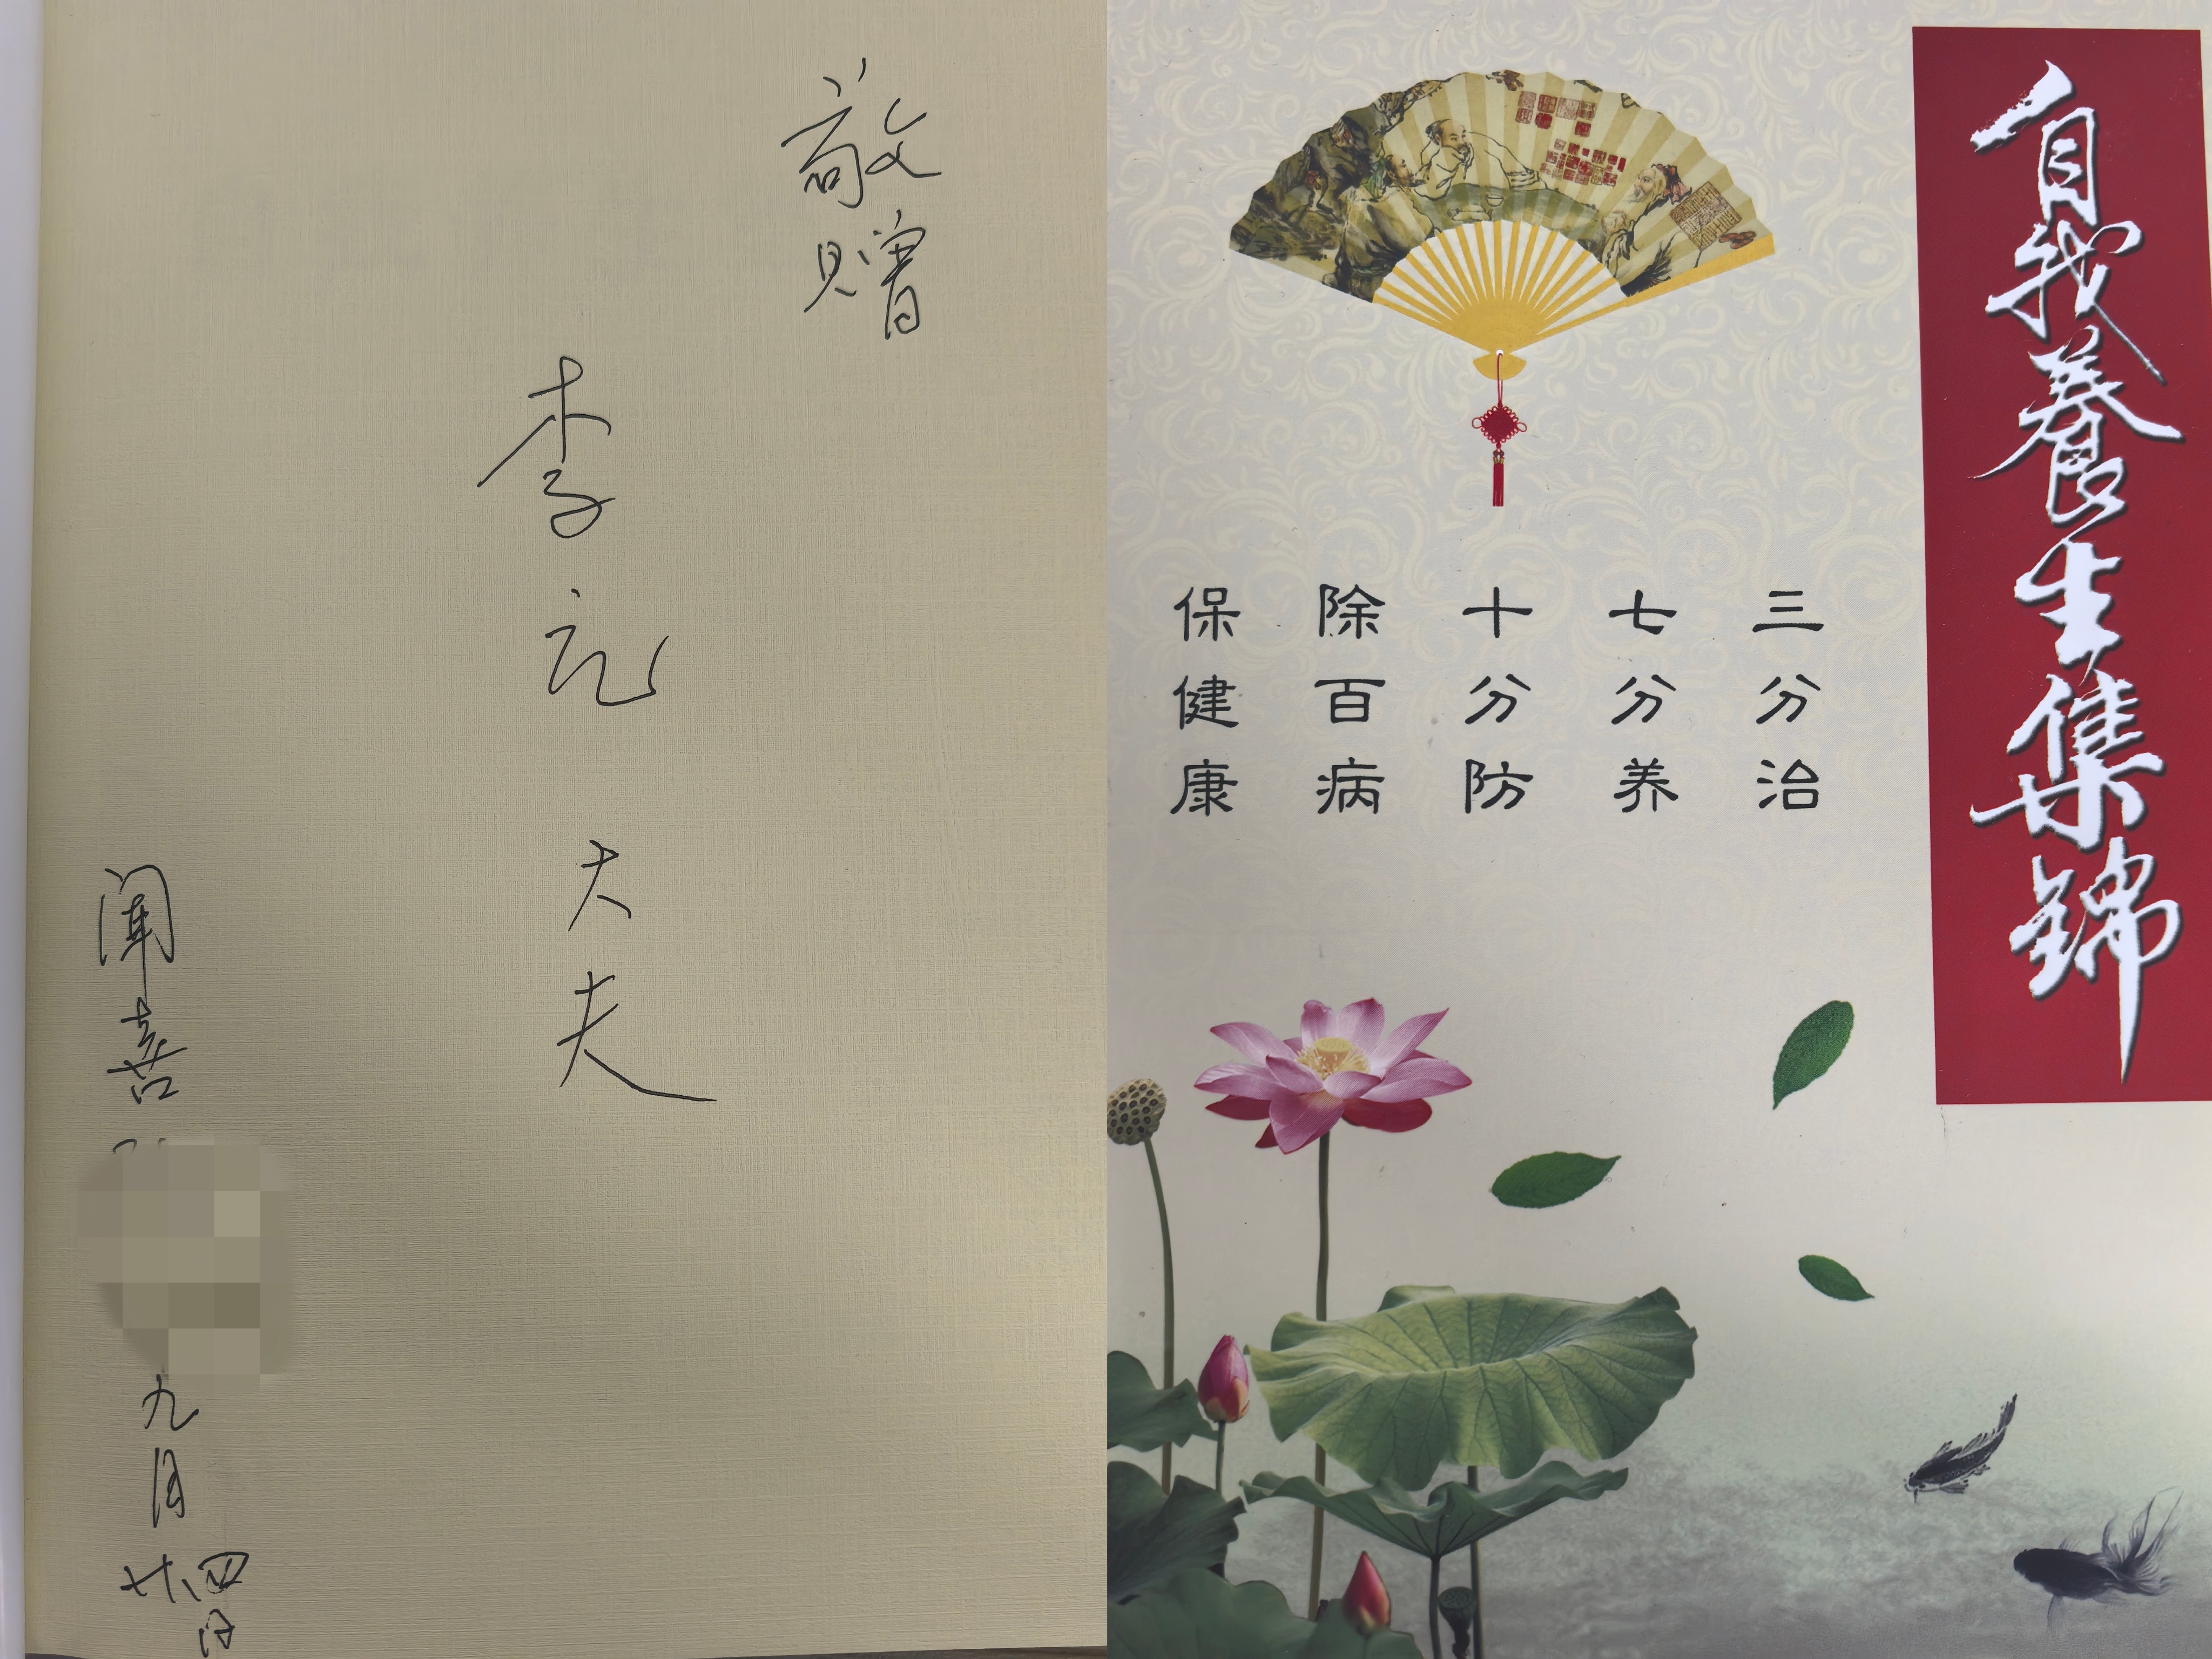 敬赠
李元大夫
闻喜
九月
廿四日
自我養生集锦
三分治
七分养
十分防
除百病
保健康